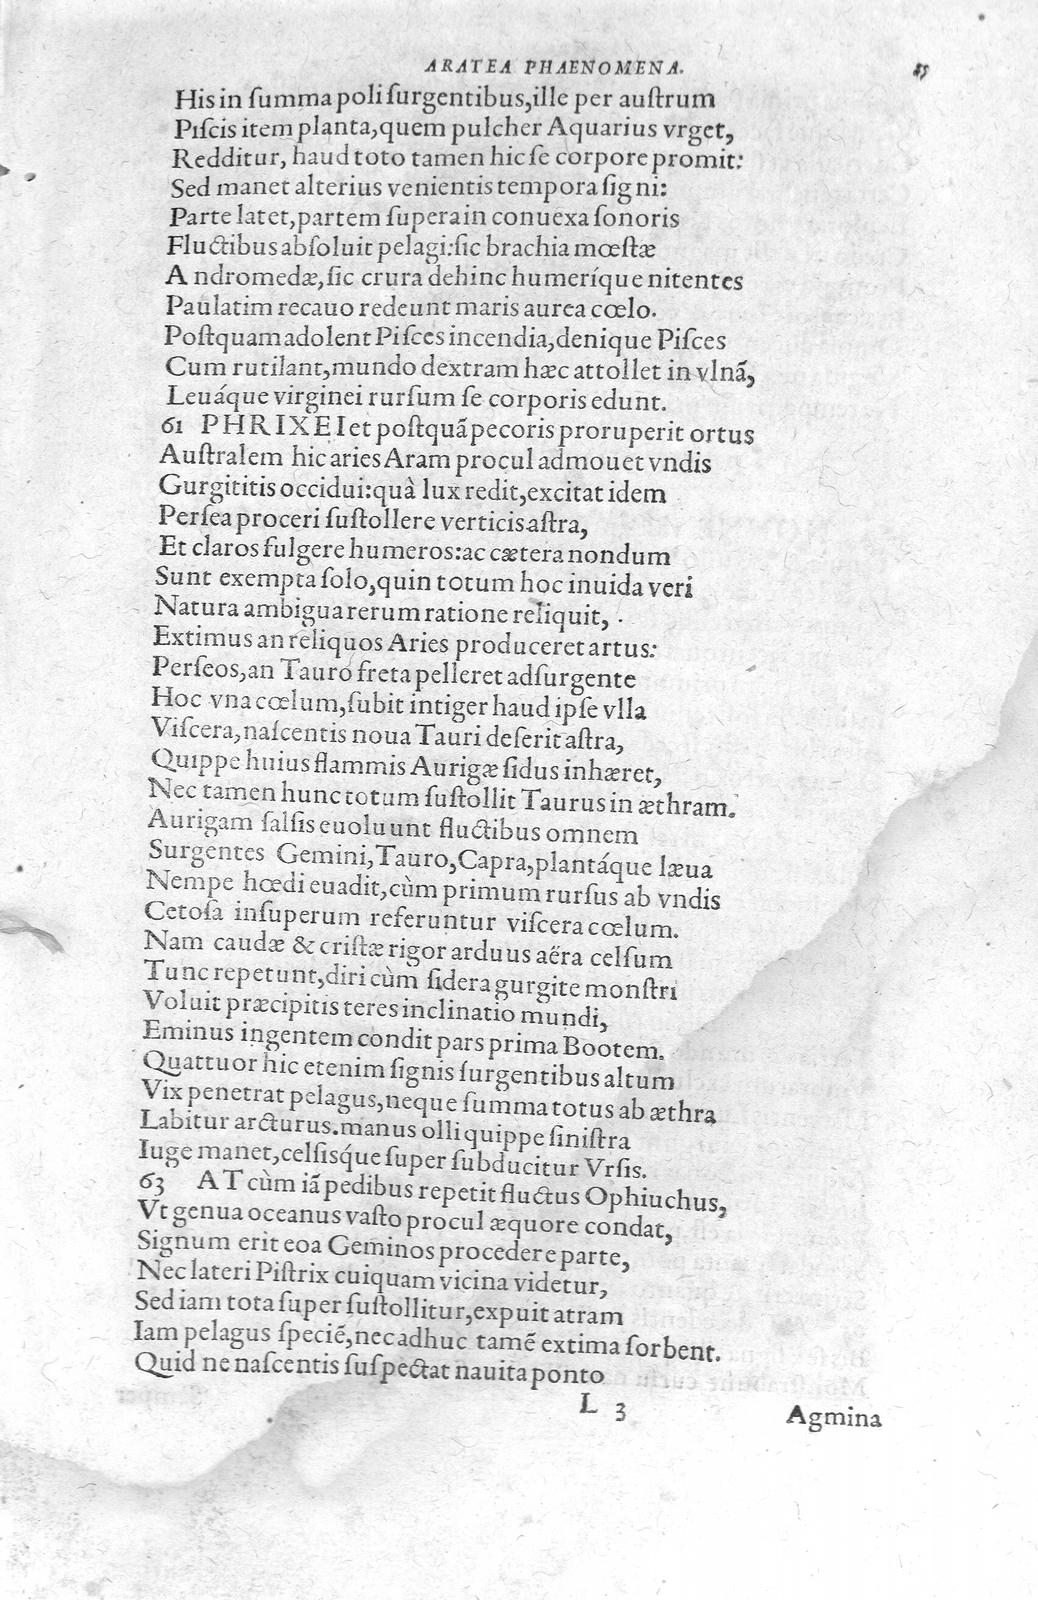 ARATEA PHAENOMENA. 85
His in ſumma poli ſurgentibus, ille per auſtrum
Piſcis item planta, quem pulcher Aquarius vrget,
Redditur, haud toto tamen hic ſe corpore promit:
Sed manet alterius venientis tempora ſigni:
Parte latet, partem ſupera in conuexa ſonoris
Fluctibus abſoluit pelagi: ſic brachia mœſtæ
Andromedæ, ſic crura dehinc humeríque nitentes
Paulatim recauo redeunt maris aurea cœlo.
Poſtquam adolent Piſces incendia, denique Piſces
Cum rutilant, mundo dextram hæc attollet in vlnã,
Leuáque virginei rurſum ſe corporis edunt.
61 PHRIXEI et poſtquã pecoris proruperit ortus
Auſtralem hic aries Aram procul admouet vndis
Gurgititis occidui: quà lux redit, excitat idem
Perſea proceri ſuſtollere verticis aſtra,
Et claros fulgere humeros: ac cætera nondum
Sunt exempta ſolo, quin totum hoc inuida veri
Natura ambigua rerum ratione reliquit,
Extimus an reliquos Aries produceret artus:
Perſeos, an Tauro freta pelleret adſurgente
Hoc vna cœlum, ſubit intiger haud ipſe vlla
Viſcera, naſcentis noua Tauri deſerit aſtra,
Quippe huius flammis Aurigæ ſidus inhæret,
Nec tamen hunc totum ſuſtollit Taurus in æthram.
Aurigam ſalſis euoluunt fluctibus omnem
Surgentes Gemini, Tauro, Capra, plantáque læua
Nempe hœdi euadit, cùm primum rurſus ab vndis
Cetoſa inſuperum referuntur viſcera cœlum.
Nam caudæ & criſtæ rigor arduus aëra celſum
Tunc repetunt, diri cùm ſidera gurgite monſtri
Voluit præcipitis teres inclinatio mundi,
Eminus ingentem condit pars prima Bootem.
Quattuor hic etenim ſignis ſurgentibus altum
Vix penetrat pelagus, neque ſumma totus ab æthra
Labitur arcturus. manus olli quippe ſiniſtra
Iuge manet, celſisque ſuper ſubducitur Vrſis.
63 AT cùm iã pedibus repetit fluctus Ophiuchus,
Vt genua oceanus vaſto procul æquore condat,
Signum erit eoa Geminos procedere parte,
Nec lateri Piſtrix cuiquam vicina videtur,
Sed iam tota ſuper ſuſtollitur, expuit atram
Iam pelagus ſpeciẽ, nec adhuc tamẽ extima ſorbent.
Quid ne naſcentis ſuſpectat nauita ponto
L 3 Agmina